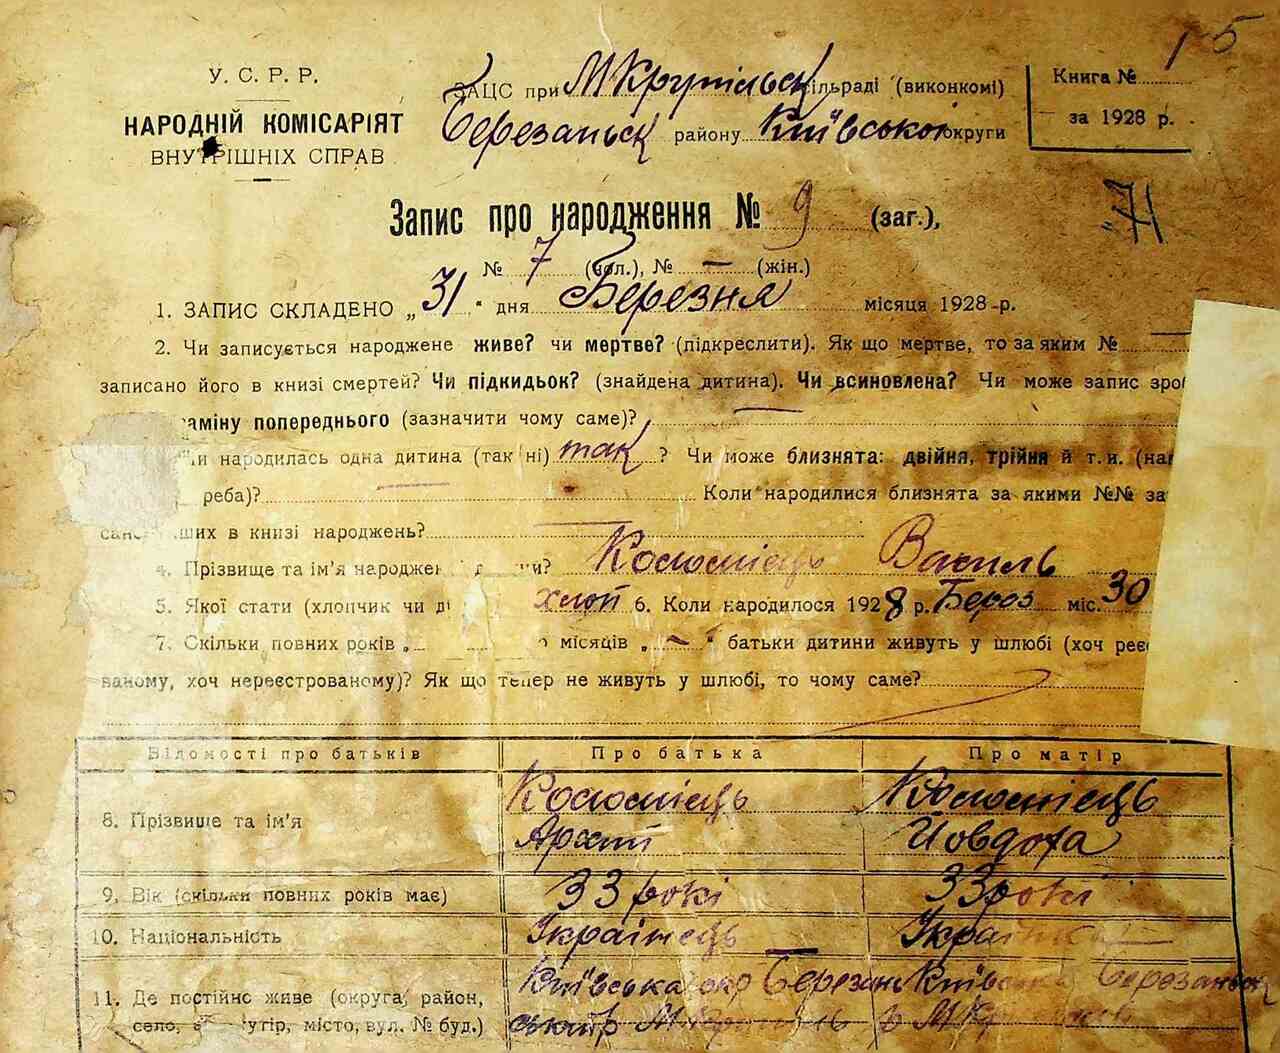 15
У. С. Р. Р.
НАРОДНІЙ КОМІСАРІЯТ
ВНУТРІШНІХ СПРАВ
ЗАЦС при М Крупільськ сільраді (виконкомі)
Березанськ району Київської округи
Книга № 1
за 1928 р.
71
Запис про народження № 9 (заг.),
№ 7 (чол.), № — (жін.)
1. ЗАПИС СКЛАДЕНО „31“ дня Березня місяця 1928 р.
2. Чи записується народжене живе? чи мертве? (підкреслити). Як що мертве, то за яким №
записано його в книзі смертей? Чи підкидьок? (знайдена дитина). Чи всиновлена? Чи може запис зроб
аміну попереднього (зазначити чому саме)?
и народилась одна дитина (так ні) так? Чи може близнята: двійня, трійня й т.и. (на
реба)? Коли народилися близнята за якими №№ за
сан ших в книзі народжень?
4. Прізвище та ім'я народжен ни? Коломієць Василь
5. Якої статі (хлопчик чи д хлоп 6. Коли народилося 1928 р. Берез міс. 30
7. Скільки повних років „ місяців „—“ батьки дитини живуть у шлюбі (хоч реє
ваному, хоч нереєстрованому)? Як що тепер не живуть у шлюбі, то чому саме?
Відомості про батьків Про батька Про матір
8. Прізвище та ім'я Коломієць Архип Коломієць Йовдоха
9. Вік (скільки повних років має) 33 рокі 33 рокі
10. Національність Українець Українка
11. Де постійно живе (округа, район, Київська окр Березан Київська Березанськ
село, хутір, місто, вул. № буд.) М М